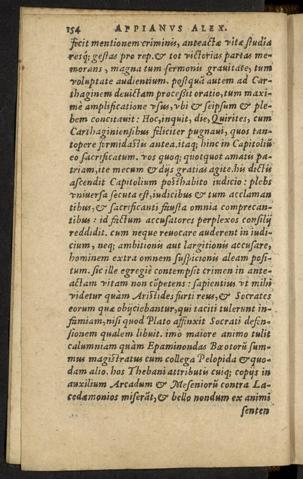 154 APPIANVS ALEX.
fecit mentionem criminis, anteactæ vitæ studia
resq; gestas pro rep. & tot victorias partas me-
morans, magna tum sermonis grauitate, tum
voluptate audientium. postquã autem ad Car-
thaginem deuictam processit oratio, tum maxi-
mè amplificatione vsus, vbi & seipsum & ple-
bem concitauit: Hoc, inquit, die, Quirites, cum
Carthaginiensibus feliciter pugnaui, quos tan-
topere formidastis antea. itaq; hinc in Capitoliũ
eo sacrificatum. vos quoq; quotquot amatis pa-
triam, ite mecum & dijs gratias agite. his dictis
ascendit Capitolium posthabito iudicio: plebs
vniuersa secuta est, iudicibus & tum acclaman
tibus, & sacrificanti fausta omnia comprecan-
tibus: id factum accusatores perplexos consilij
reddidit. cum neque reuocare auderent in iudi-
cium, neq; ambitionis aut largitionis accusare,
hominem extra omnem suspicionis aleam posi-
tum. sic ille egregiè contempsit crimen in ante-
actam vitam non cõpetens: sapientius vt mihi
videtur quàm Aristides furti reus, & Socrates
eorum quæ obijciebantur, qui taciti tulerunt in-
famiam, nisi quod Plato affinxit Socrati defen-
sionem qualem libuit. imò maiore animo tulit
calumniam quàm Epaminondas Bœotorũ sum-
mus magistratus cum collega Pelopida & quo-
dam alio. hos Thebani attributis cuiq; copijs in
auxilium Arcadum & Meseniorũ contra La-
cedæmonios miserũt, & bello nondum ex animi
senten